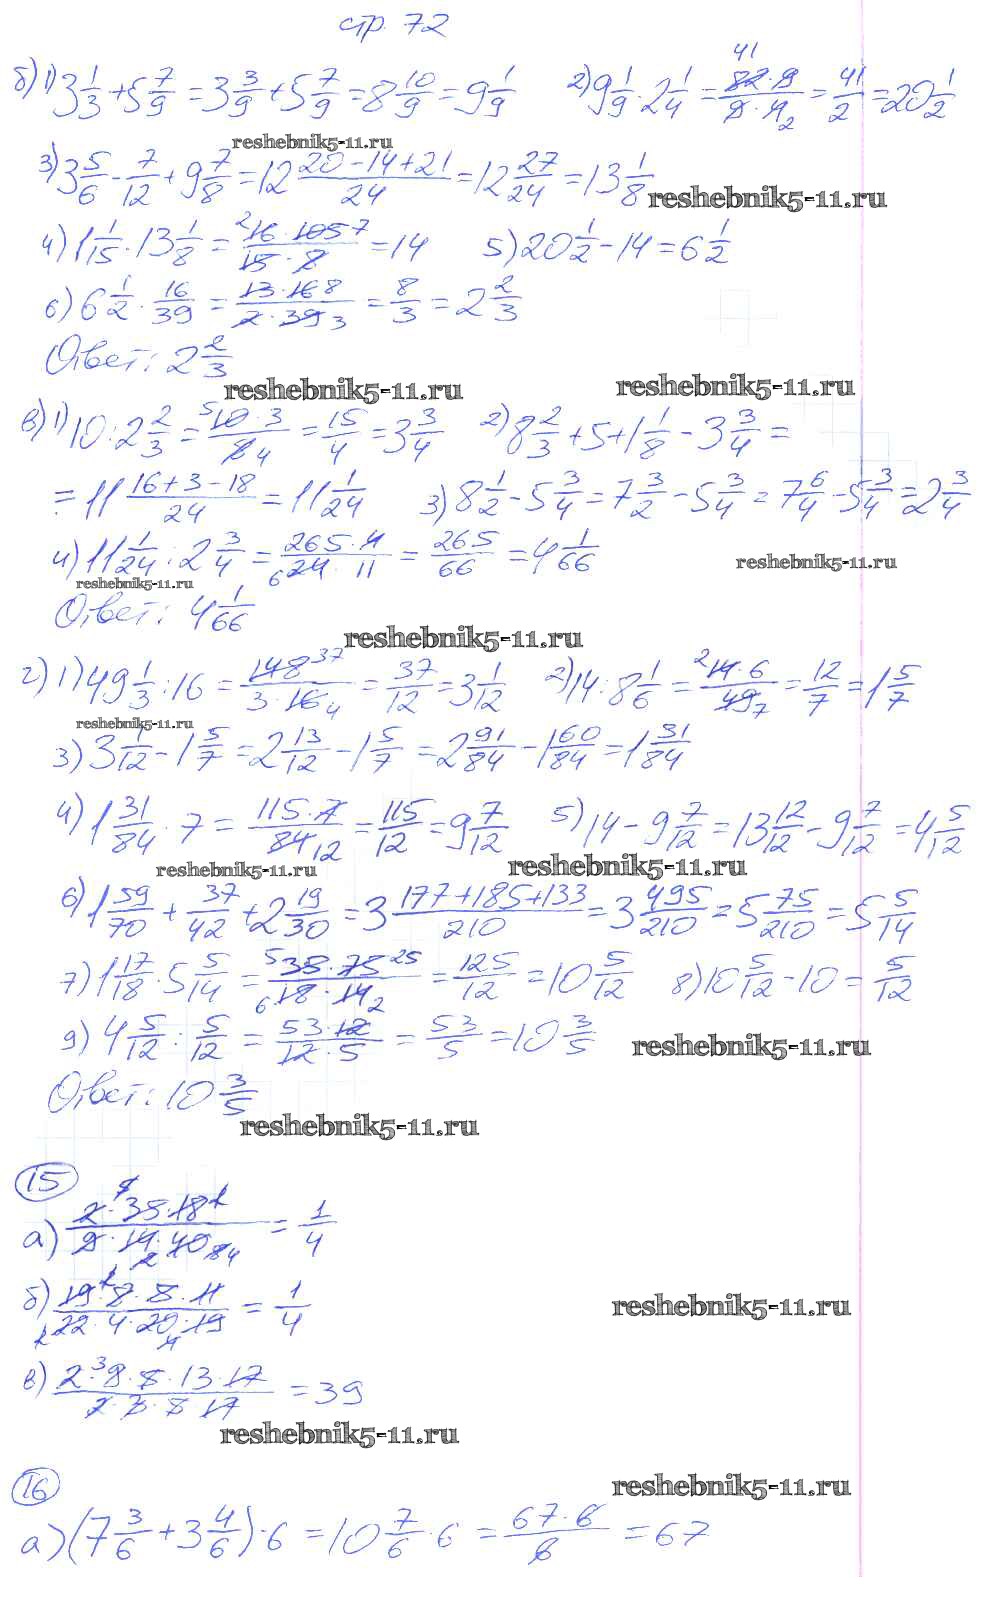 стр. 72
б) 1) 3 1/3 + 5 7/9 = 3 3/9 + 5 7/9 = 8 10/9 = 9 1/9 2) 9 1/9 · 2 1/4 = 82 · 9 / 9 · 4 = 41/2 = 20 1/2
reshebnik5-11.ru
3) 3 5/6 - 7/12 + 9 7/8 = 12 20 - 14 + 21 / 24 = 12 27/24 = 13 1/8
reshebnik5-11.ru
4) 1 1/15 · 13 1/8 = 16 · 105 / 15 · 8 = 14 5) 20 1/2 - 14 = 6 1/2
6) 6 1/2 · 16/39 = 13 · 16 / 2 · 39 = 8/3 = 2 2/3
Ответ: 2 2/3
reshebnik5-11.ru reshebnik5-11.ru
в) 1) 10 : 2 2/3 = 10 · 3 / 8 = 15/4 = 3 3/4 2) 8 2/3 + 5 + 1 1/8 - 3 3/4 =
= 11 16 + 3 - 18 / 24 = 11 1/24 3) 8 1/2 - 5 3/4 = 7 3/2 - 5 3/4 = 7 6/4 - 5 3/4 = 2 3/4
4) 11 1/24 : 2 3/4 = 265 · 4 / 24 · 11 = 265/66 = 4 1/66
reshebnik5-11.ru reshebnik5-11.ru
Ответ: 4 1/66
reshebnik5-11.ru
г) 1) 49 1/3 : 16 = 148 / 3 · 16 = 37/12 = 3 1/12 2) 14 : 8 1/6 = 14 · 6 / 49 = 12/7 = 1 5/7
reshebnik5-11.ru
3) 3 1/12 - 1 5/7 = 2 13/12 - 1 5/7 = 2 91/84 - 1 60/84 = 1 31/84
4) 1 31/84 · 7 = 115 · 7 / 84 = 115/12 = 9 7/12 5) 14 - 9 7/12 = 13 12/12 - 9 7/12 = 4 5/12
reshebnik5-11.ru reshebnik5-11.ru
6) 1 59/70 + 37/42 + 2 19/30 = 3 177 + 185 + 133 / 210 = 3 495/210 = 5 75/210 = 5 5/14
7) 1 17/18 · 5 5/14 = 35 · 75 / 18 · 14 = 125/12 = 10 5/12 8) 10 5/12 - 10 = 5/12
9) 4 5/12 : 5/12 = 53 · 12 / 12 · 5 = 53/5 = 10 3/5
reshebnik5-11.ru
Ответ: 10 3/5
reshebnik5-11.ru
15
а) 2 · 35 · 18 / 9 · 14 · 40 = 1/4
б) 19 · 8 · 5 · 11 / 22 · 4 · 20 · 19 = 1/4
reshebnik5-11.ru
в) 2 · 9 · 8 · 13 · 17 / 2 · 3 · 8 · 17 = 39
reshebnik5-11.ru
16
reshebnik5-11.ru
а) (7 3/6 + 3 4/6) · 6 = 10 7/6 · 6 = 67 · 6 / 6 = 67